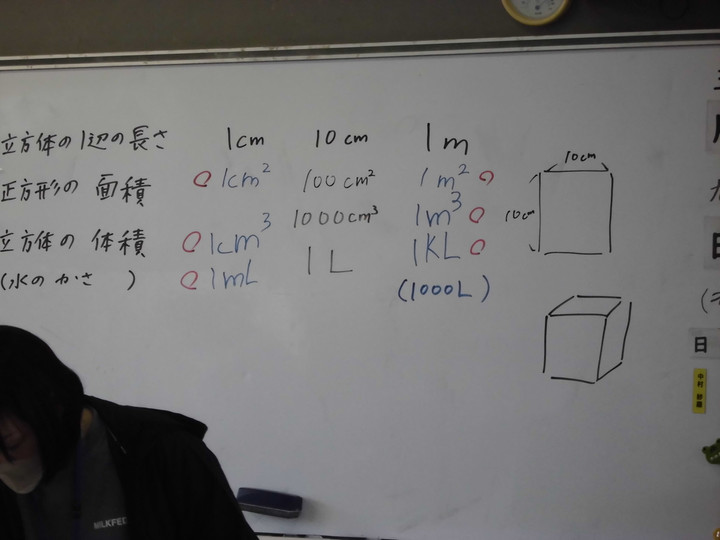 立方体の1辺の長さ 1cm 10cm 1m
正方形の面積 1cm² 100cm² 1m²
立方体の体積 1cm³ 1000cm³ 1m³
(水のかさ ) 1mL 1L 1KL
(1000L)
10cm
10cm
日
MILKFED